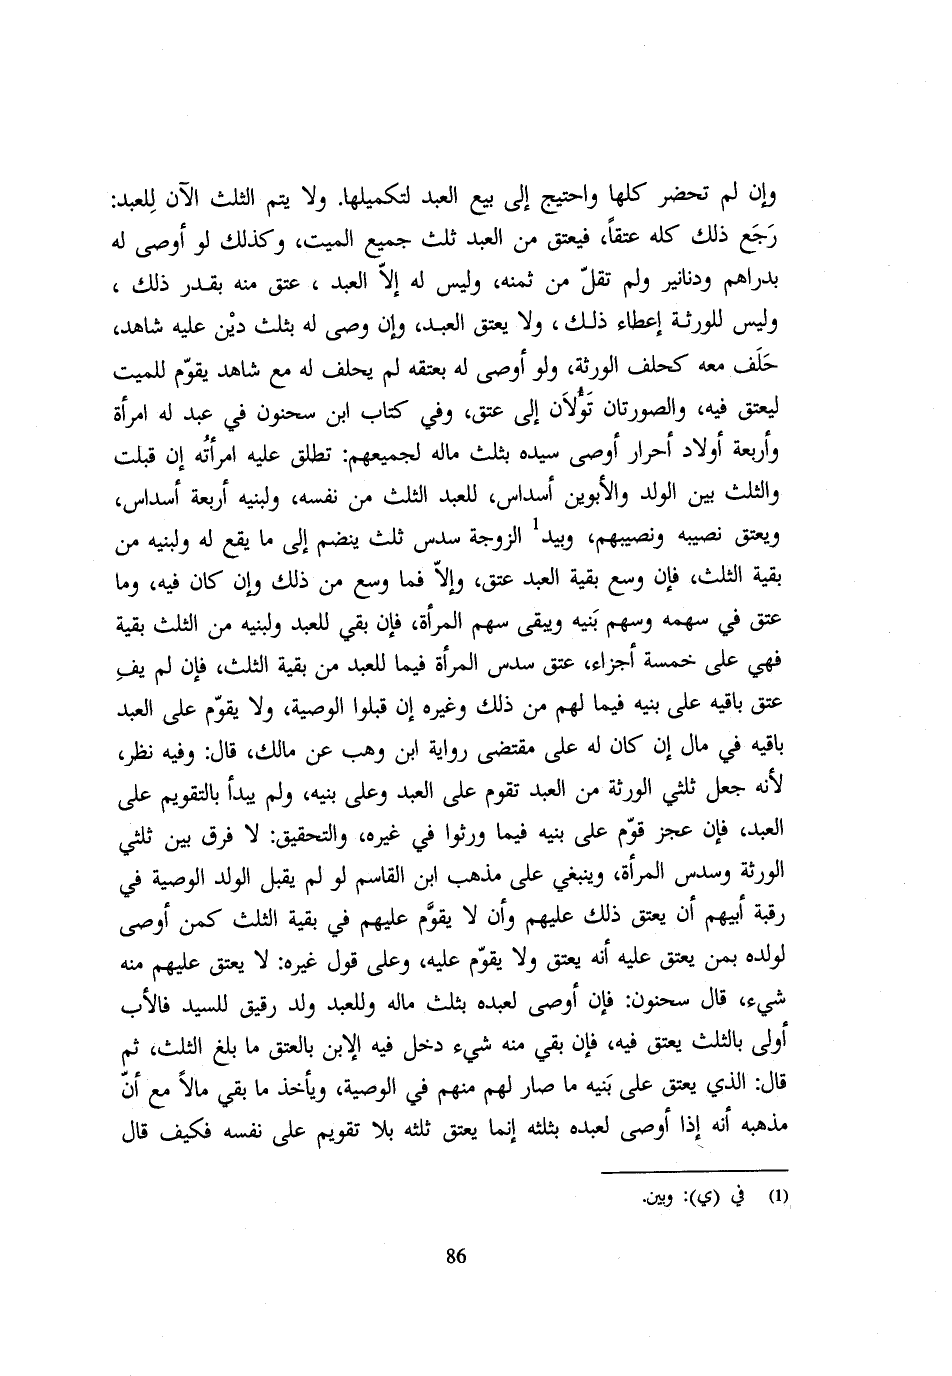 وإن لم تحضر كلها واحتيج إلى بيع العبد لتكميلها. ولا يتم الثلث الآن لِلعبد:
رَجَع ذلك كله عتقاً، فيعتق من العبد ثلث جميع الميت، وكذلك لو أوصى له
بدراهم ودنانير ولم تقلّ من ثمنه، وليس له إلاّ العبد ، عتق منه بقدر ذلك ،
وليس للورثة إعطاء ذلك ، ولا يعتق العبد، وإن وصى له بثلث ديْن عليه شاهد،
حَلَف معه كحلف الورثة، ولو أوصى له بعتقه لم يحلف له مع شاهد يقوّم للميت
ليعتق فيه، والصورتان تَؤُلاَن إلى عتق، وفي كتاب ابن سحنون في عبد له امرأة
وأربعة أولاد أحرار أوصى سيده بثلث ماله لجميعهم: تطلق عليه امرأتُه إن قبلت
والثلث بين الولد والأبوين أسداس، للعبد الثلث من نفسه، ولبنيه أربعة أسداس،
ويعتق نصيبه ونصيبهم، وبيد1 الزوجة سدس ثلث ينضم إلى ما يقع له ولبنيه من
بقية الثلث، فإن وسع بقية العبد عتق، وإلاّ فما وسع من ذلك وإن كان فيه، وما
عتق في سهمه وسهم بَنيه ويبقى سهم المرأة، فإن بقي للعبد ولبنيه من الثلث بقية
فهي على خمسة أجزاء، عتق سدس المرأة فيما للعبد من بقية الثلث، فإن لم يفِ
عتق باقيه على بنيه فيما لهم من ذلك وغيره إن قبلوا الوصية، ولا يقوّم على العبد
باقيه في مال إن كان له على مقتضى رواية ابن وهب عن مالك، قال: وفيه نظر،
لأنه جعل ثلثي الورثة من العبد تقوم على العبد وعلى بنيه، ولم يبدأ بالتقويم على
العبد، فإن عجز قوّم على بنيه فيما ورثوا في غيره، والتحقيق: لا فرق بين ثلثي
الورثة وسدس المرأة، وينبغي على مذهب ابن القاسم لو لم يقبل الولد الوصية في
رقبة أبيهم أن يعتق ذلك عليهم وأن لا يقوَّم عليهم في بقية الثلث كمن أوصى
لولده بمن يعتق عليه أنه يعتق ولا يقوّم عليه، وعلى قول غيره: لا يعتق عليهم منه
شيء، قال سحنون: فإن أوصى لعبده بثلث ماله وللعبد ولد رقيق للسيد فالأب
أولى بالثلث يعتق فيه، فإن بقي منه شيء دخل فيه الإبن بالعتق ما بلغ الثلث، ثم
قال: الذي يعتق على بَنيه ما صار لهم منهم في الوصية، ويأخذ ما بقي مالاً مع أنّ
مذهبه أنه إذا أوصى لعبده بثلثه إنما يعتق ثلثه بلا تقويم على نفسه فكيف قال
(1) في (ي): وبين.
86